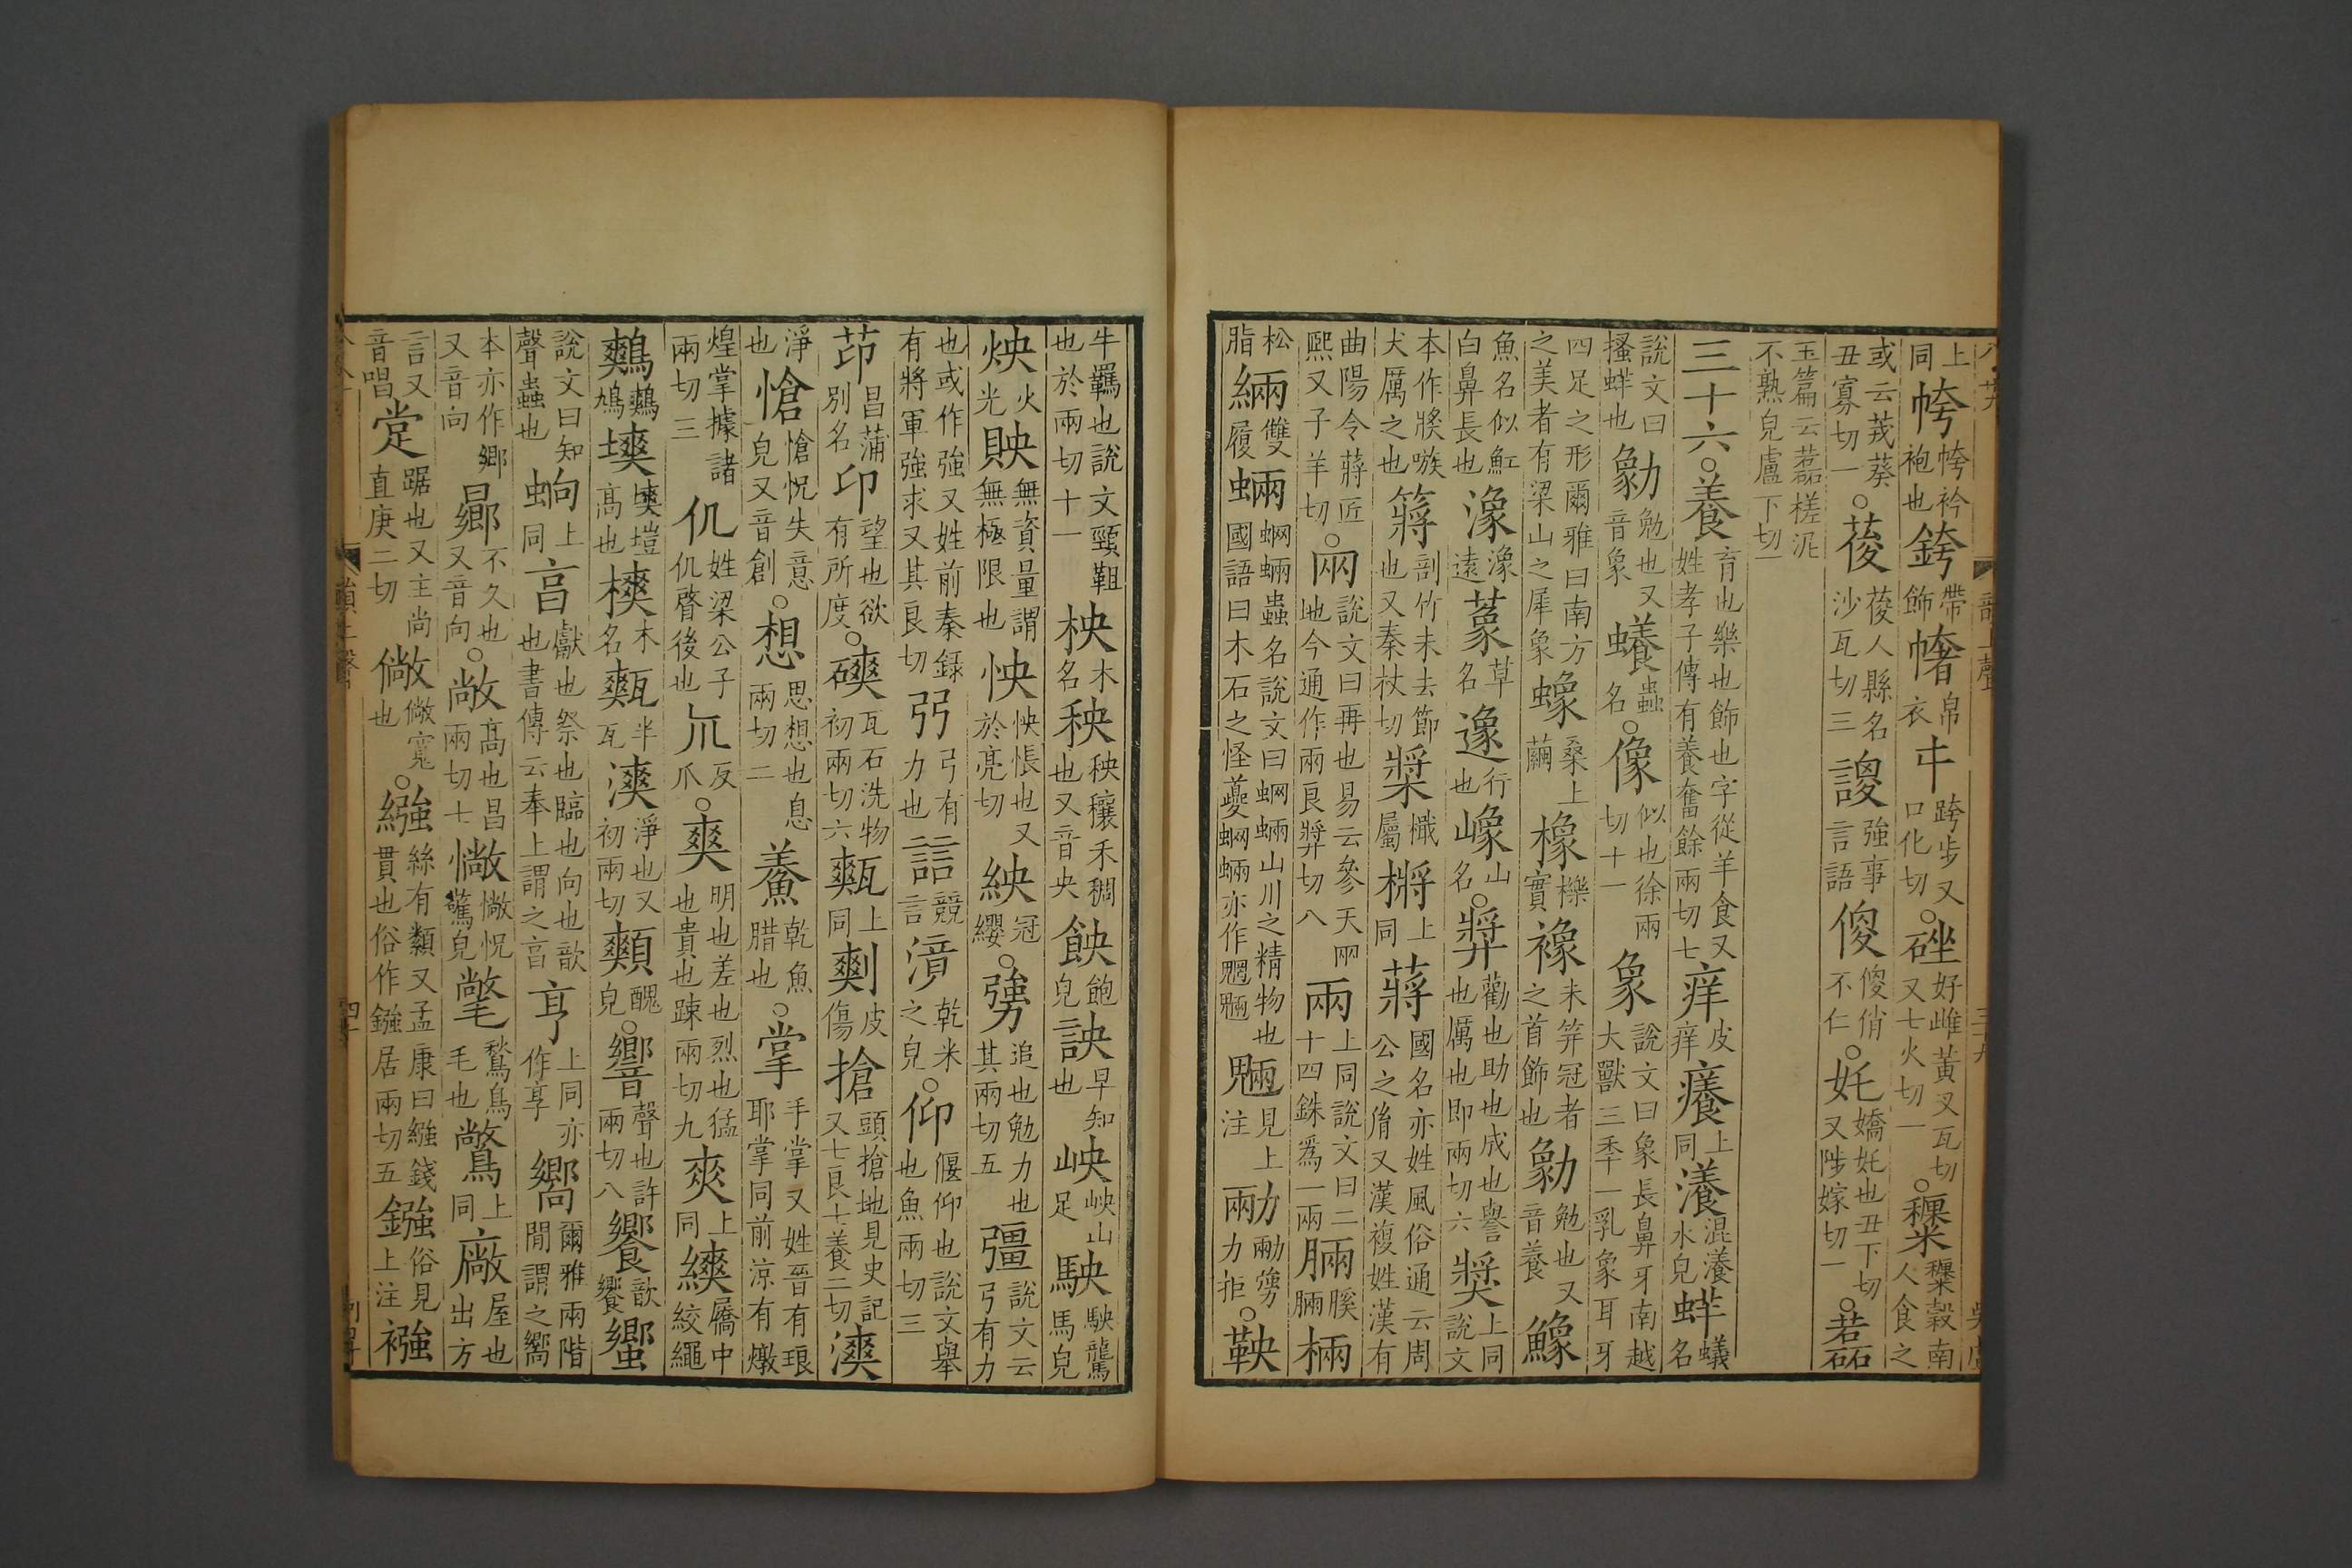 上同 㡁 㡁衿袍也 銙 帶飾 帾 帛衣 㐄 跨步又口化切 ○ 䂳 好雌黃叉瓦切又七火切一 ○ 𥽿 穀南人食之
或云茙葵丑寡切一 ○ 葰 葰人縣名沙瓦切三 謏 強事言語 傻 傻俏不仁 ○ 妊 嬌妊也丑下切又陟嫁切一 ○ 䃮
玉篇云䃮磋泥不熟皃盧下切一
三十六 ○ 養 育也樂也飾也字從羊食又姓孝子傳有養奮餘兩切七 痒 皮痒 癢 上同 瀁 滉瀁水皃 蛘 蟻名
說文曰搔蛘也 勨 勉也又音象 蠰 蟲名 ○ 像 似也徐兩切十一 象 說文曰象長鼻牙南越大獸三秊一乳象耳牙
四足之形爾雅曰南方之美者有梁山之犀象 蟓 桑上繭 橡 櫟實 襐 未笄冠者之首飾也 勨 勉也又音養 鱌
魚名似魟白鼻長也 潒 潒遠 蒙 草名 𨗨 行也 嶑 山名 ○ 𢍰 勸也助也成也譽也厲也即兩切六 獎 上同說文
本作㢡嗾犬厲之也 䉃 剖竹未去節也又秦杖切 槳 檝屬 㯍 上同 蔣 國名亦姓風俗通云周公之胤又漢複姓漢有
曲陽令蔣匠熙又子羊切 ○ 㒳 說文曰再也易云參天㒳地今通作兩良𢍰切八 兩 上同說文曰二十四銖爲一兩 脼 膎脼 㭥
松脂 緉 雙履 蜽 蝄蜽蟲名說文曰蝄蜽山川之精物也國語曰木石之怪夔蝄蜽亦作魍魎 魎 見上注 勔 勔勥力拒 ○ 鞅
牛羈也說文頸靼也於兩切十一 柍 木名 秧 秧穰禾稠也又音央 䬬 飽皃 詇 早知也 岟 岟山足 駚 駚驡馬皃
炴 火光 䝉 無資量謂無極限也 怏 怏悵也又於亮切 紻 冠纓 ○ 勥 迫也勉力也其兩切五 彊 說文云弓有力
也或作強又姓前秦錄有將軍強求又其良切 弜 弓有力也 誩 競言 滰 乾米之皃 ○ 仰 偃仰也說文舉也魚兩切三
茆 昌蒲別名 卬 望也欲有所度 ○ 磢 瓦石洗物初兩切六 甐 上同 剿 皮傷 搶 頭搶地見史記又七良七養二切 漺
淨也 愴 愴怳失意皃又音創 ○ 想 思想也息兩切二 鯗 乾魚腊也 ○ 掌 手掌又姓晉有琅耶掌同前涼有燉
煌掌據諸兩切三 仉 姓梁公子仉䏿後也 𠨮 反爪 ○ 爽 明也差也烈也猛也貴也踈兩切九 㸑 上同 縔 屩中絞繩
鷞 鷞鳩 塽 塽塏高也 樉 木名 甐 半瓦 漺 淨也又初兩切 䫪 醜皃 ○ 響 聲也許兩切八 饗 歆饗 蠁
說文曰知聲蟲也 蚼 上同 亯 獻也祭也臨也向也歆也書傳云奉上謂之亯 亨 上同亦作享 嚮 爾雅兩階閒謂之嚮
本亦作鄉又音向 曏 不久也又音向 ○ 敞 高也昌兩切七 惝 惝怳驚皃 氅 鶖鳥毛也 𪄹 上同 廠 屋也出方
言又音唱 㲂 踞也又主尚直庚二切 僘 僘寬也 ○ 繈 絲有纇又孟康曰繈錢貫也俗作鏹居兩切五 鏹 俗見上注 襁